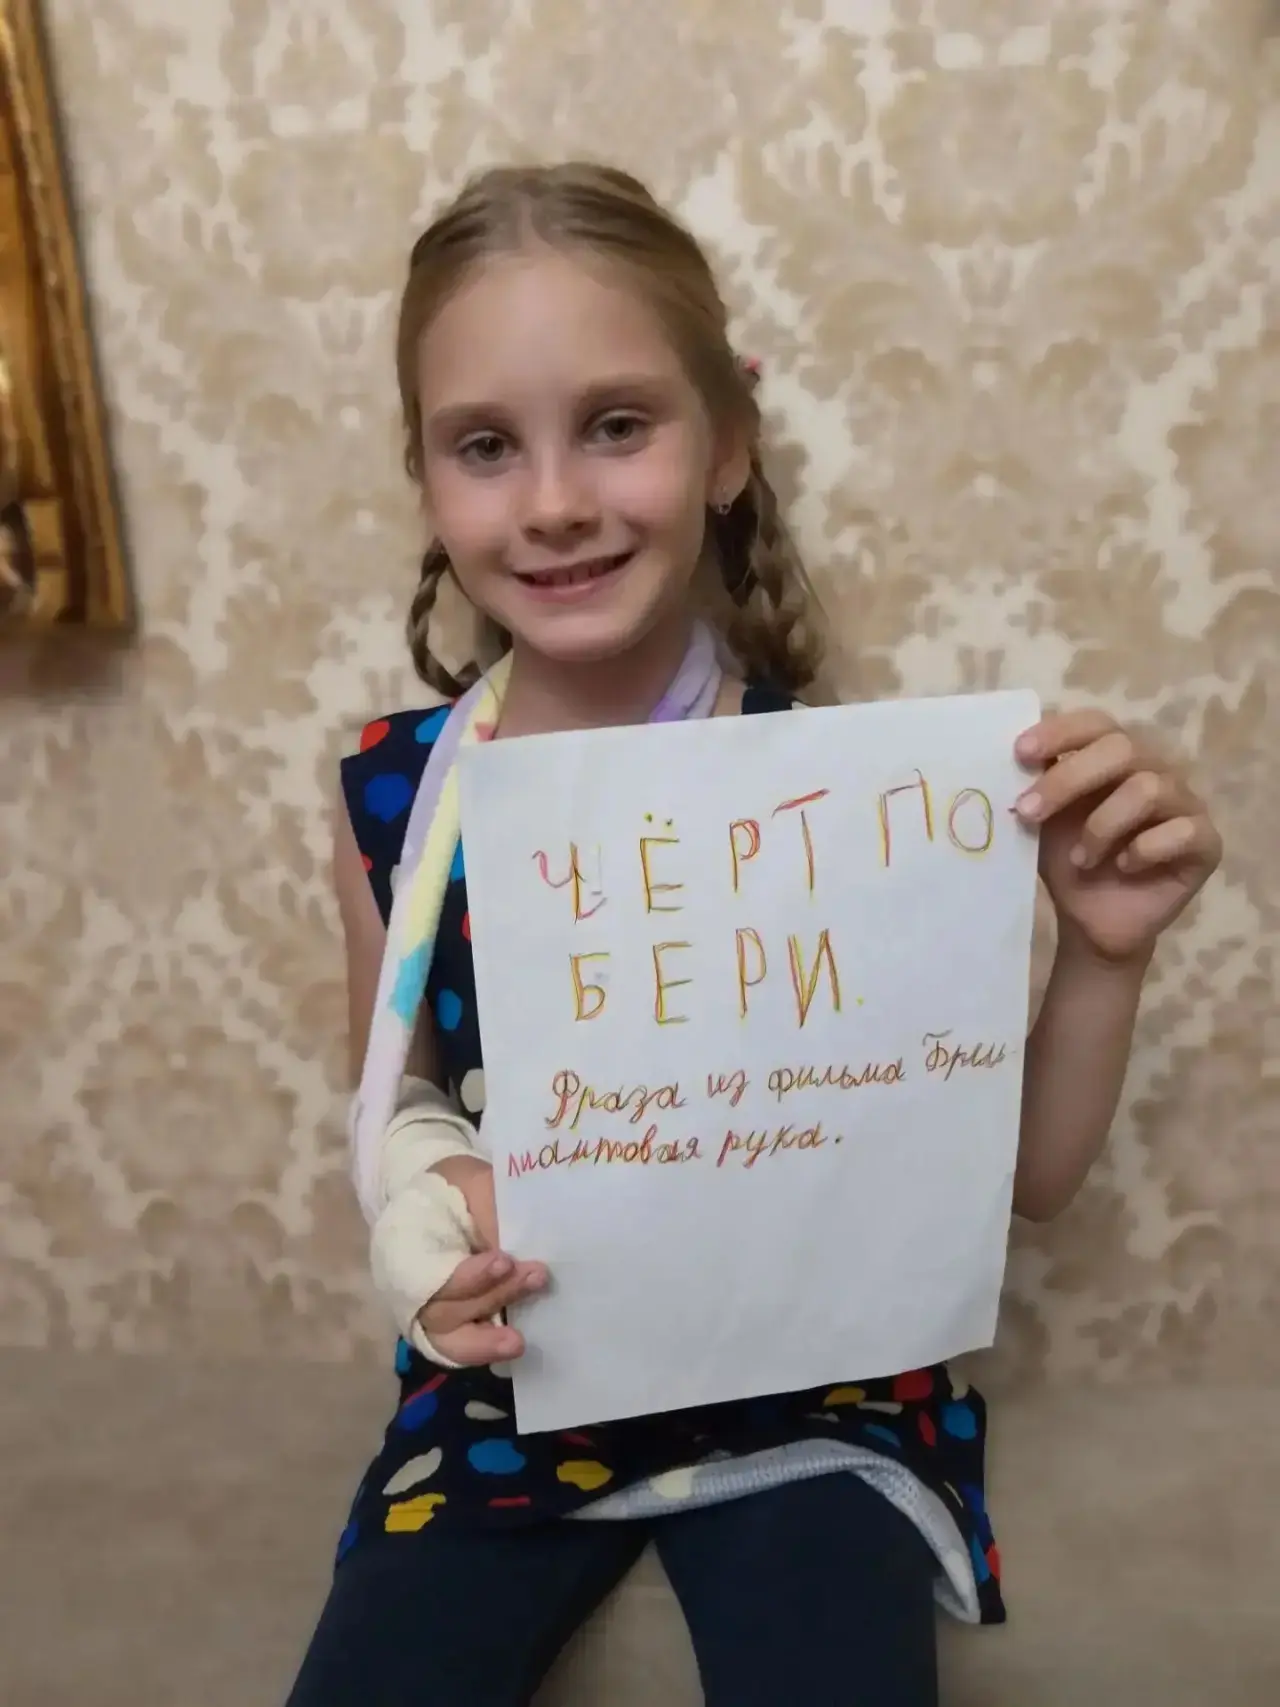 ЧЁРТ ПО
БЕРИ.
Фраза из фильма Брил-
лиантовая рука.